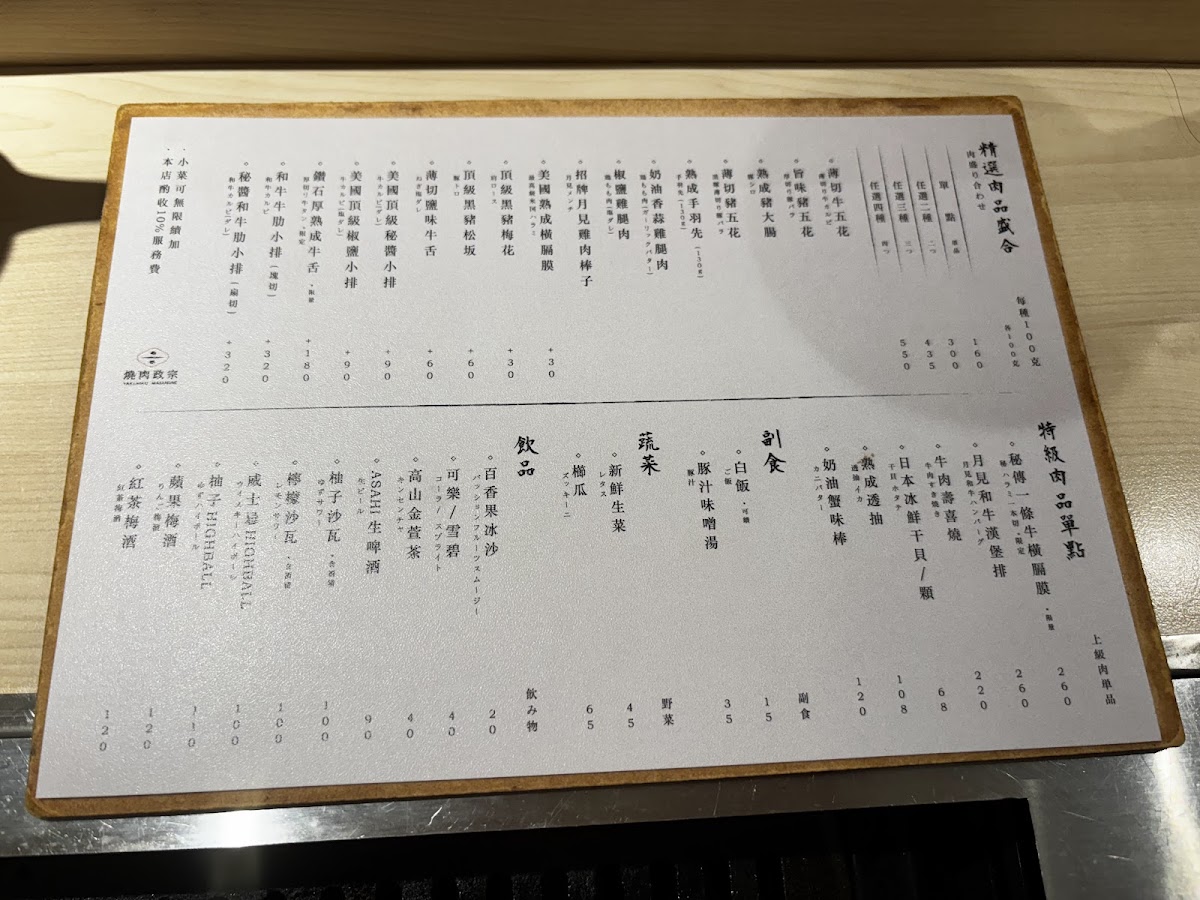 精選肉品盛合
肉盛り合わせ
每種100克
各100克
單點 單品 160
任選二種 二つ 300
任選三種 三つ 435
任選四種 四つ 550
薄切牛五花
薄切り牛カルビ
旨味豬五花
厚切り豚バラ
熟成豬大腸
豚シロ
薄切豬五花
薄切り豚バラ
熟成手羽先(130g)
手羽先(130g)
奶油香蒜雞腿肉
鶏もも肉(ガーリックバター)
椒鹽雞腿肉
鶏もも肉(塩ダレ)
招牌月見雞肉棒子
月見メンチ
美國熟成橫膈膜 +30
頂級黑豬梅花 +30
肩ロース
頂級黑豬松坂 +60
豚トロ
薄切鹽味牛舌 +60
美國頂級秘醬小排 +90
牛カルビ(ダレ)
美國頂級椒鹽小排 +90
牛カルビ(塩ダレ)
鑽石厚熟成牛舌 ·限量 +180
厚切り牛タン·限定
和牛牛肋小排(塊切) +320
和牛カルビ
秘醬和牛肋小排(扇切) +320
和牛カルビ(ダレ)
·小菜可無限續加
·本店酌收10%服務費
燒肉政宗
YAKINIKU MASAMUNE
特級肉品單點
上級肉単品
秘傳一條牛橫膈膜 ·限量 260
秘ハラミ一本切·限定
月見和牛漢堡排 260
月見和牛ハンバーグ
牛肉壽喜燒 220
牛肉すき焼き
日本冰鮮干貝/顆 68
干貝ホタテ
熟成透抽 108
透抽イカ
奶油蟹味棒 120
カニバター
副食
副食
白飯 ·可續 15
ご飯
豚汁味噌湯 35
豚汁
蔬菜
野菜
新鮮生菜 45
レタス
櫛瓜 65
ズッキーニ
飲品
飲み物
百香果冰沙 20
パッションフルーツスムージー
可樂/雪碧 40
コーラ/スプライト
高山金萱茶 40
キンセンチャ
ASAHI生啤酒 90
生ビール
柚子沙瓦 ·含酒精 100
ゆずサワー
檸檬沙瓦 ·含酒精 100
レモンサワー
威士忌HIGHBALL 100
ウィスキーハイボール
柚子HIGHBALL 110
ゆずハイボール
蘋果梅酒 120
りんご梅酒
紅茶梅酒 120
紅茶梅酒